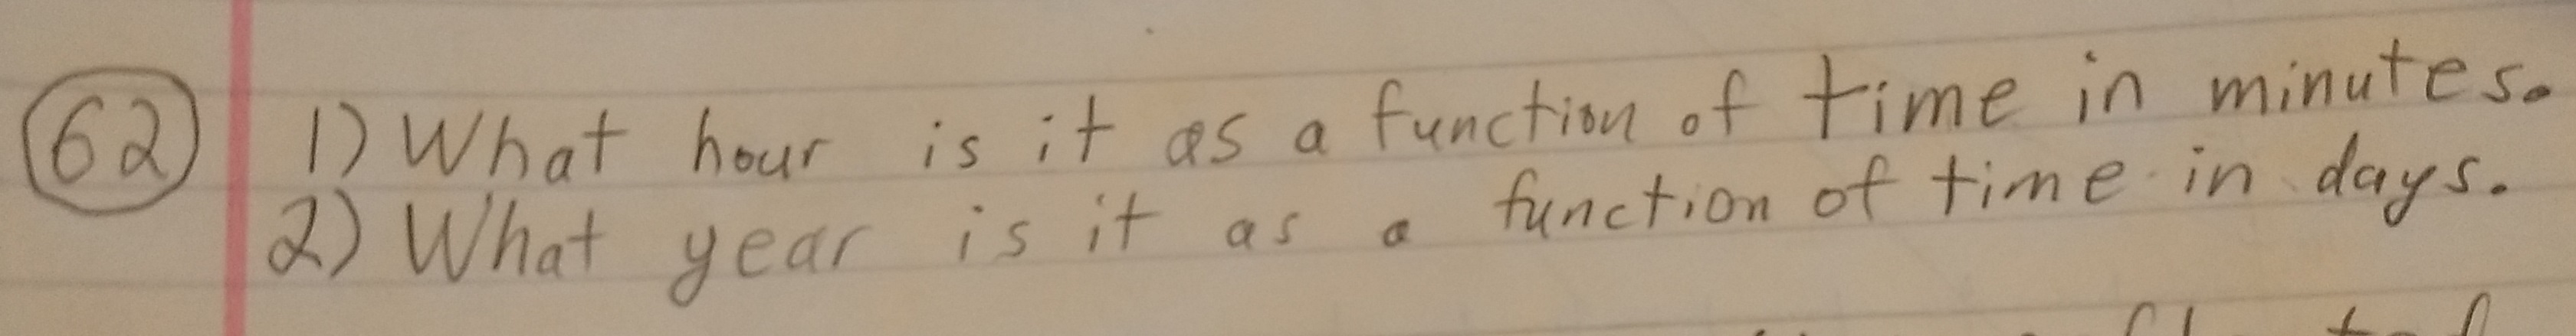 62 1) What hour is it as a function of time in minutes.
2) What year is it as a function of time in days.